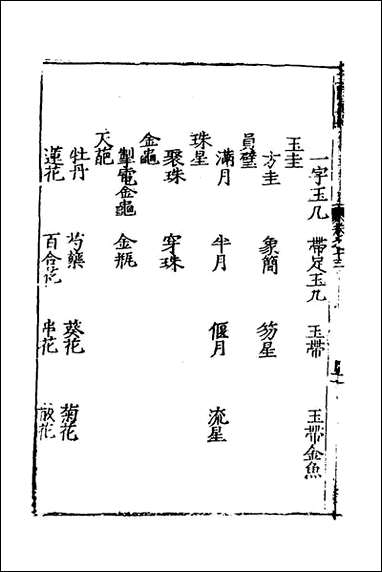 一字玉几 帶足玉几 玉帶 玉帶金魚
玉圭
方圭 象簡 笏星
員璧
滿月 半月 偃月 流星
珠星
聚珠 穿珠
金龜
掣電金龜 金瓶
天葩
牡丹 芍藥 葵花 菊花
蓮花 百合花 串花